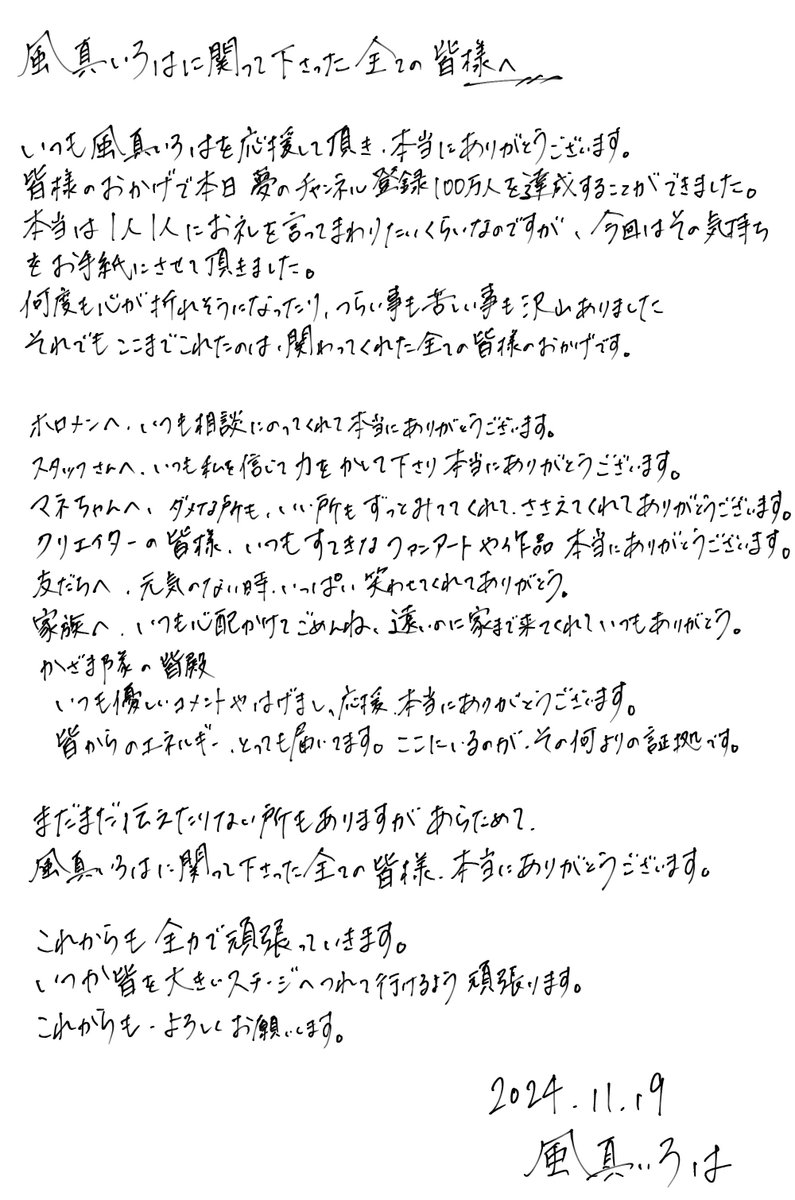 風真いろはに関って下さった全ての皆様へ
いつも風真いろはを応援して頂き、本当にありがとうございます。
皆様のおかげで本日夢のチャンネル登録100万人を達成することができました。
本当は1人1人にお礼を言ってまわりたいくらいなのですが、今回はその気持ち
をお手紙にさせて頂きました。
何度も心が折れそうになったり、つらい事も苦しい事も沢山ありました
それでもここまでこれたのは、関わってくれた全ての皆様のおかげです。
ホロメンへ、いつも相談にのってくれて本当にありがとうございます。
スタッフさんへ、いつも私を信じて力をかして下さり本当にありがとうございます。
マネちゃんへ、ダメな所も、いい所もずっとみててくれて、ささえてくれてありがとうございます。
クリエイターの皆様、いつもすてきなファンアートや作品本当にありがとうございます。
友だちへ、元気のない時、いっぱい笑わせてくれてありがとう。
家族へ、いつも心配かけてごめんね、遠いのに家まで来てくれていつもありがとう。
かざま隊の皆殿
いつも優しいコメントやはげまし、応援、本当にありがとうございます。
皆からのエネルギー、とっても届いてます。ここにいるのが、その何よりの証拠です。
まだまだ伝えたりない所もありますがあらためて、
風真いろはに関って下さった全ての皆様、本当にありがとうございます。
これからも全力で頑張っていきます。
いつか皆を大きいステージへつれて行けるよう頑張ります。
これからも、よろしくお願いします。
2024.11.19
風真いろは